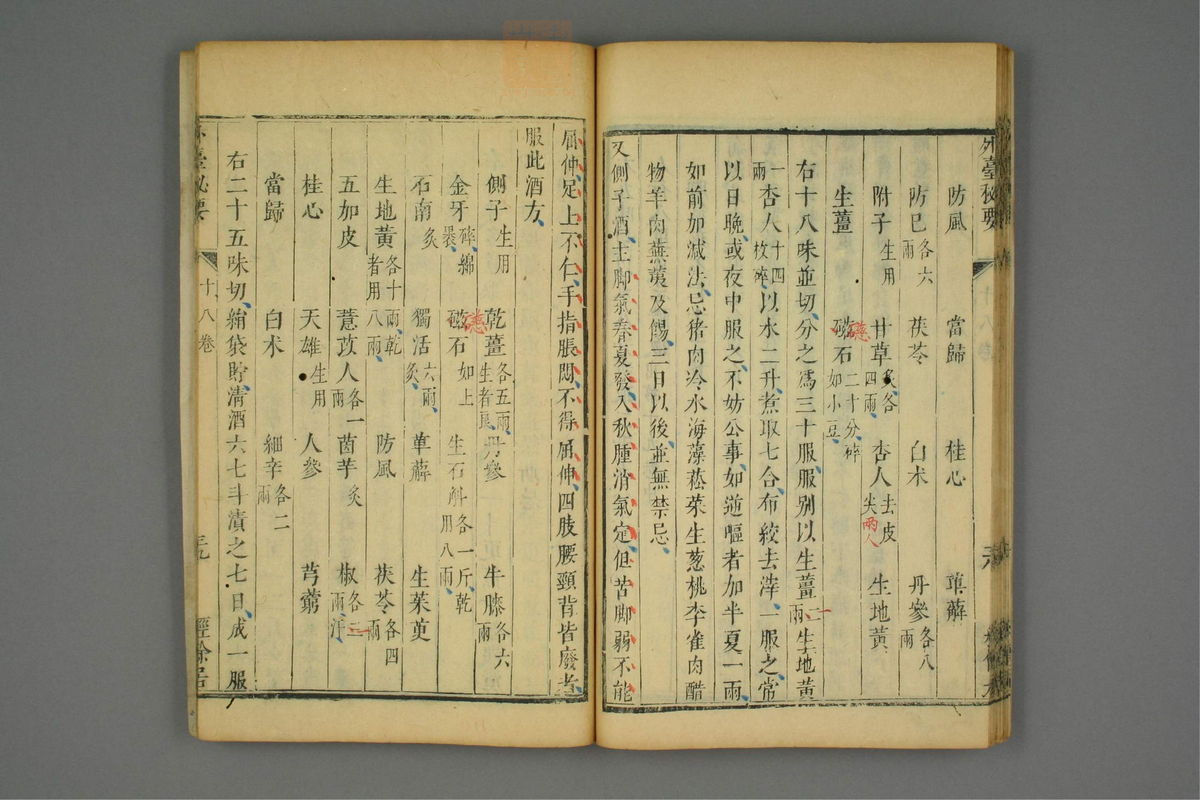 外臺秘要
防風 當歸 桂心 萆薢
防巳各六兩 茯苓 白术 丹參各八兩
附子生用 甘草炙各四兩 杏人去皮尖兩人 生地黃
生薑 磁石二十分碎如小豆
右十八味並切分之爲三十服服別以生薑一兩生地黃
一兩杏人十四枚碎以水二升煮取七合布絞去滓一服之常
以日晚或夜中服之不妨公事如逆嘔者加半夏一兩
如前加減法忌猪肉冷水海藻菘菜生葱桃李雀肉醋
物羊肉蕪荑及餳三日以後並無禁忌
又側子酒主脚氣春夏發入秋腫消氣定但苦脚弱不能
屈伸足上不仁手指脹悶不得屈伸四肢腰頸背皆廢者
服此酒方
側子生用 乾薑各五兩生者良 丹參 牛膝各六兩
金牙碎綿裹 磁石如上 生石斛各一斤乾用八兩
石南炙 獨活六兩炙 萆薢 生茱萸
生地黃各十兩乾者用八兩 防風 茯苓各四兩
五加皮 薏苡人各一兩 茵芋炙 椒各二兩汗
桂心 天雄生用 人參 芎藭
當歸 白术 細辛各二兩
右二十五味切絹袋貯清酒六七斗漬之七日成一服
外臺秘要 十八卷 三九 經餘居